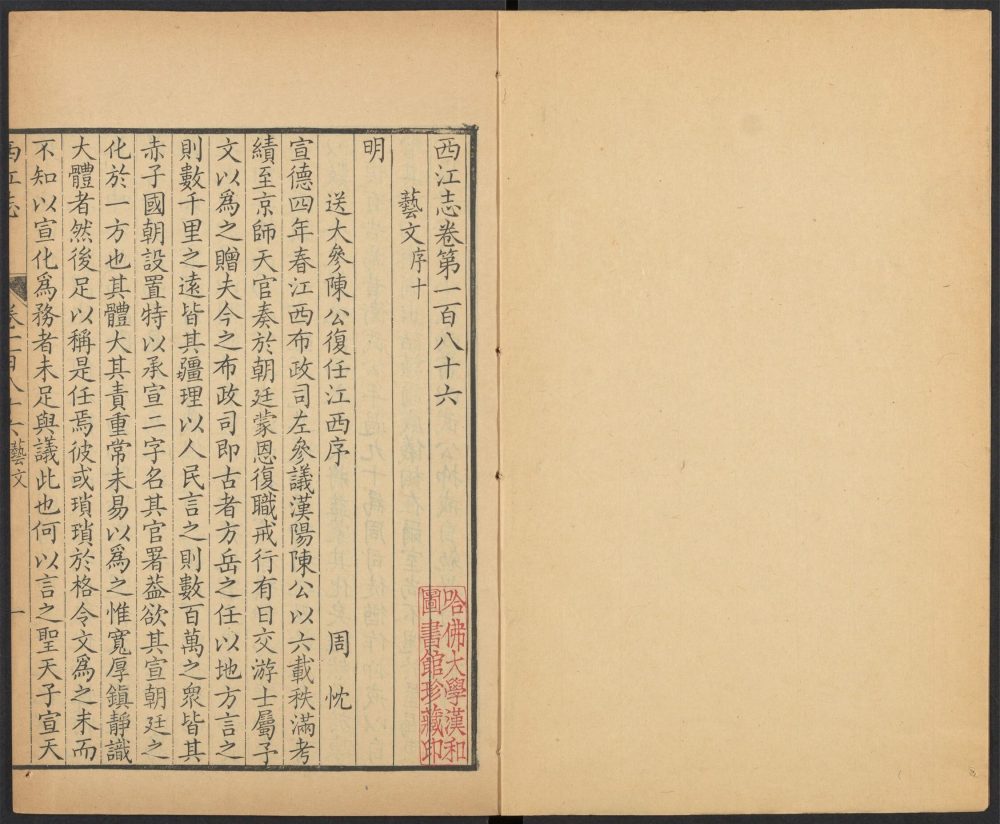 西江志卷第一百八十六
藝文序十
明
送大參陳公復任江西序 周忱
宣德四年春江西布政司左參議漢陽陳公以六載秩滿考
績至京師天官奏於朝廷蒙恩復職戒行有日交游士屬予
文以爲之贈夫今之布政司即古者方岳之任以地方言之
則數千里之遠皆其疆理以人民言之則數百萬之衆皆其
赤子國朝設置特以承宣二字名其官署葢欲其宣朝廷之
化於一方也其體大其責重常未易以爲之惟寬厚鎮靜識
大體者然後足以稱是任焉彼或瑣瑣於格令文爲之末而
不知以宣化爲務者未足與議此也何以言之聖天子宣天
西江志 卷一百八十六藝文 一
哈佛大學漢和
圖書館珍藏印